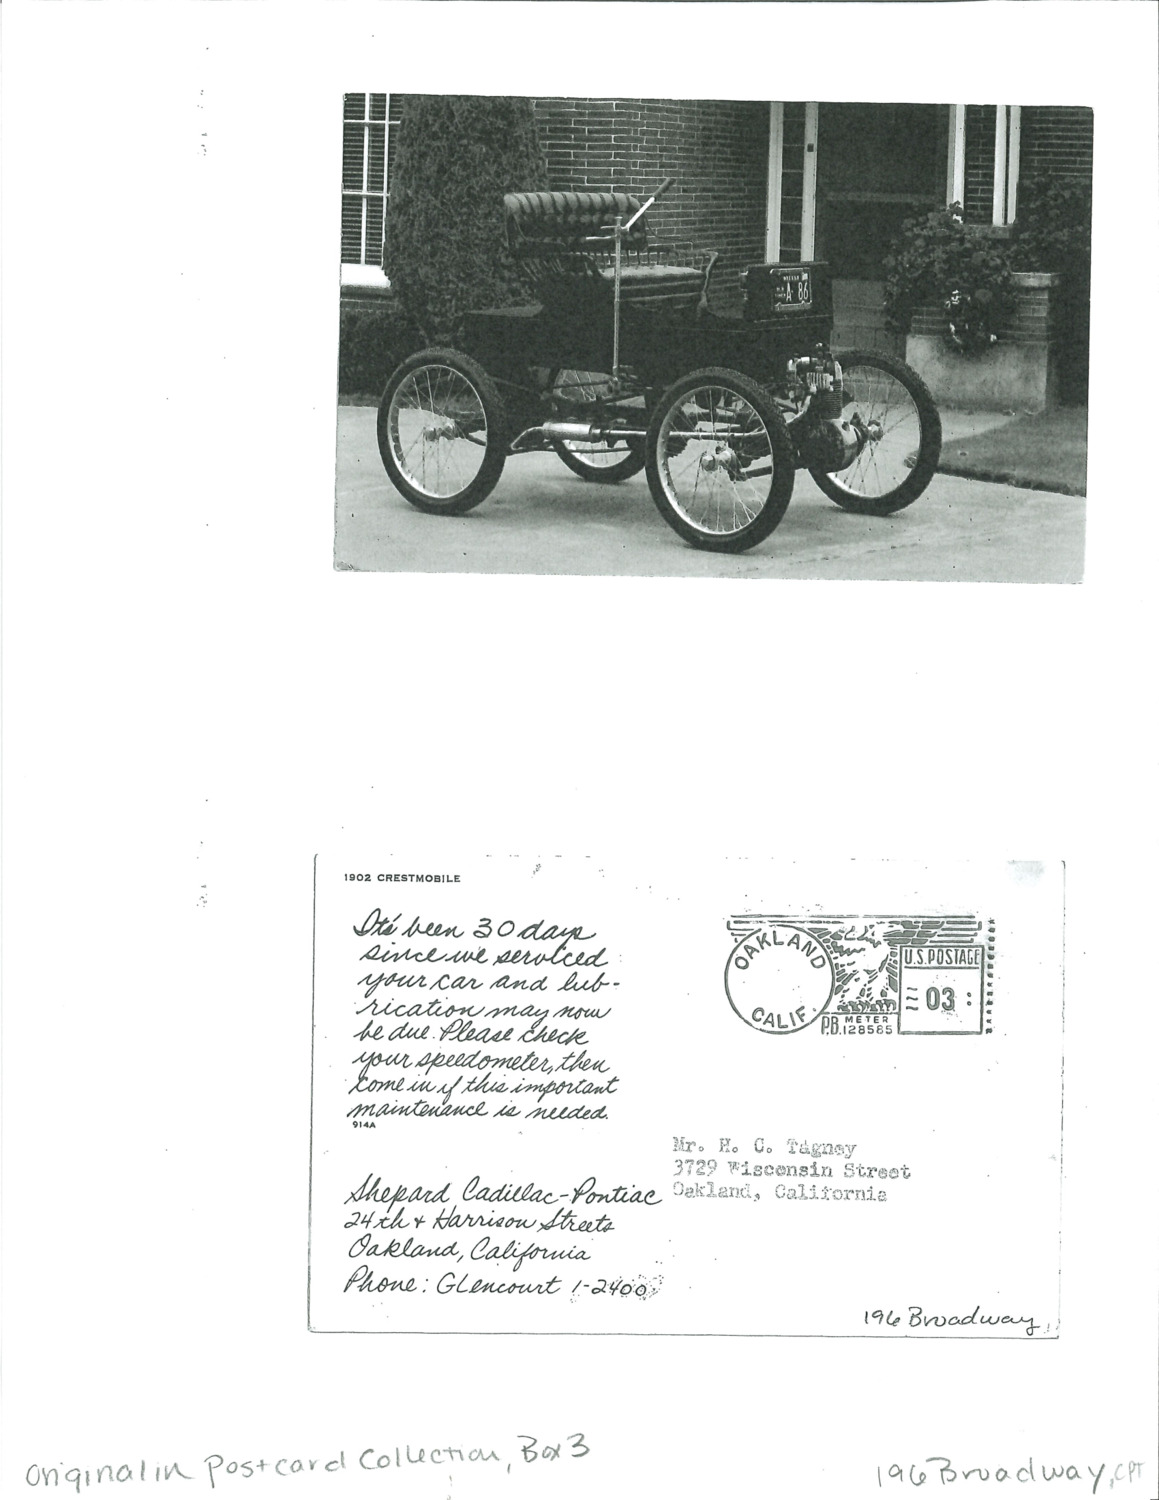 A 86
1902 CRESTMOBILE
It's been 30 days
since we serviced
your car and lub-
rication may now
be due. Please check
your speedometer, then
come in if this important
maintenance is needed.
914A
Shepard Cadillac-Pontiac
24th & Harrison Streets
Oakland, California
Phone: GLencourt 1-2400
OAKLAND
CALIF.
U.S. POSTAGE
03
P.B. METER
128585
Mr. H. C. Tagney
3729 Wisconsin Street
Oakland, California
196 Broadway
Original in Postcard Collection, Box 3
196 Broadway, CPT